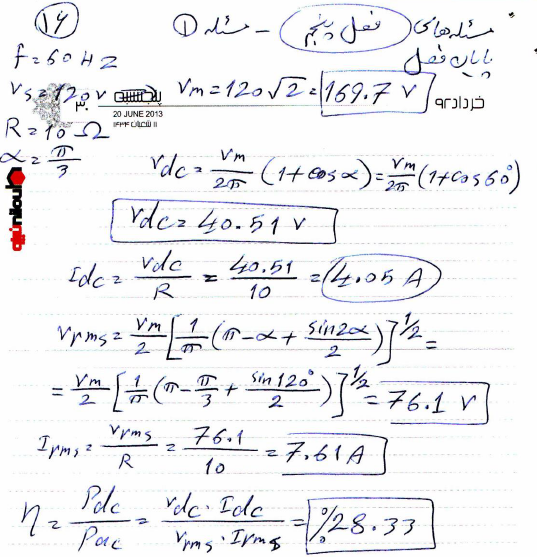 ۱۴
مسئله های فصل پنجم – مسئله ۱
پایان فصل
f = 60 Hz
Vs = 120 v → Vm = 120√2 = 169.7 V
۳۰ پنج‌شنبه
20 JUNE 2013
۱۱ شعبان ۱۴۳۴
خرداد ۹۲
R = 10 Ω
α = π/3
Vdc = Vm/2π (1 + cos α) = Vm/2π (1 + cos 60°)
Vdc = 40.51 V
Idc = Vdc/R = 40.51/10 = 4.05 A
Vrms = Vm/2 [1/π (π - α + sin2α/2)]^1/2 =
= Vm/2 [1/π (π - π/3 + sin120°/2)]^1/2 = 76.1 V
Irms = Vrms/R = 76.1/10 = 7.61 A
η = Pdc/Pac = Vdc · Idc / Vrms · Irms = %28.33